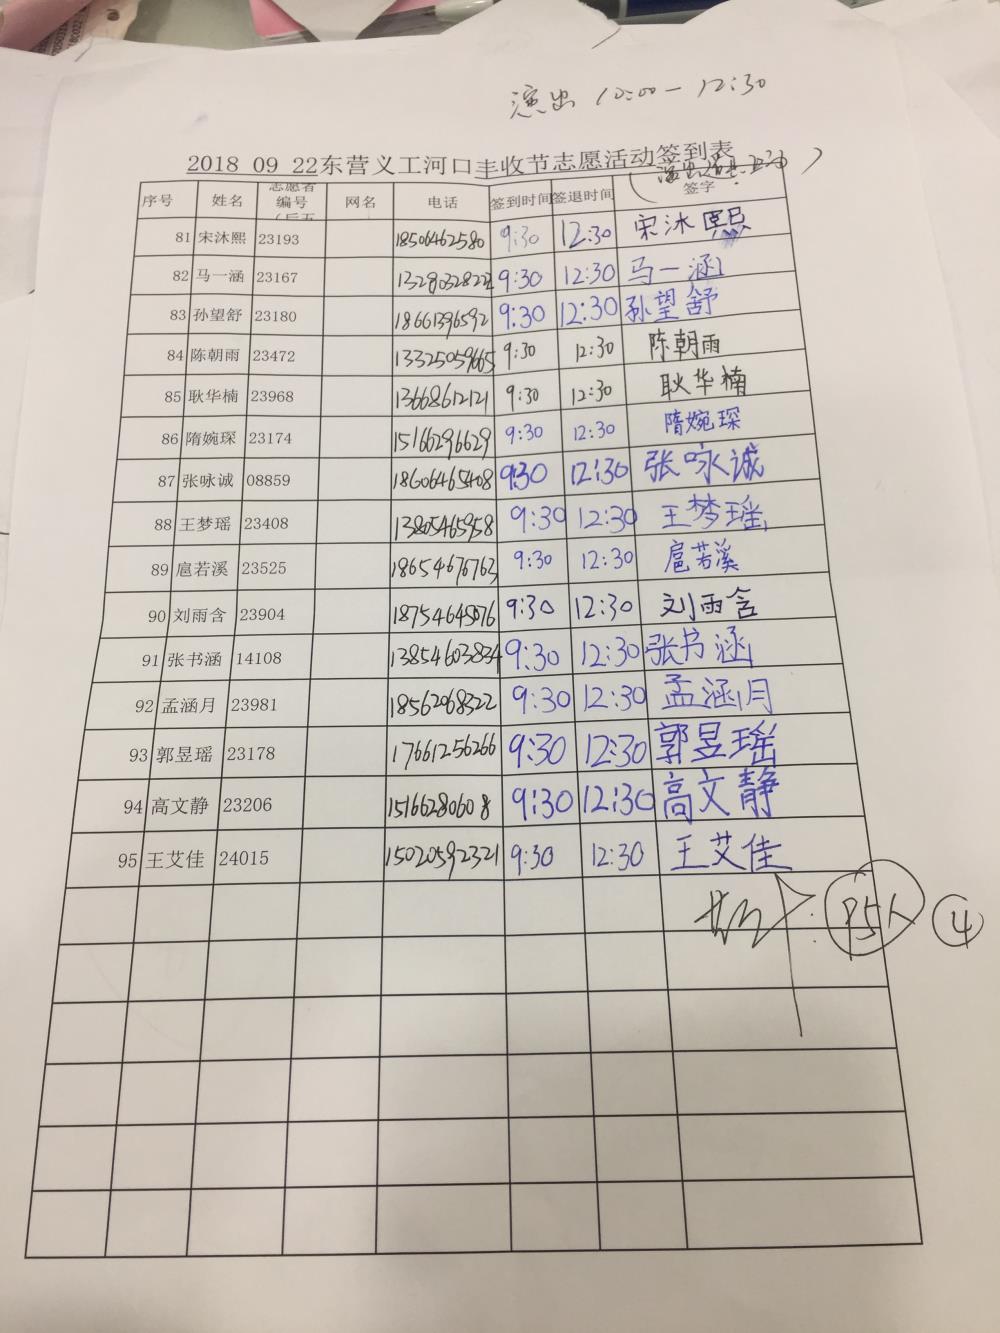 演出 12:00-12:30
2018 09 22东营义工河口丰收节志愿活动签到表
序号 姓名 志愿者编号(后五 网名 电话 签到时间 签退时间 签字
81 宋沐熙 23193 18506462580 9:30 12:30 宋沐熙
82 马一涵 23167 9:30 12:30 马一涵
83 孙望舒 23180 18661396592 9:30 12:30 孙望舒
84 陈朝雨 23472 13325059665 9:30 12:30 陈朝雨
85 耿华楠 23968 13668612121 9:30 12:30 耿华楠
86 隋婉琛 23174 15166296629 9:30 12:30 隋婉琛
87 张咏诚 08859 18606465408 9:30 12:30 张咏诚
88 王梦瑶 23408 13805465958 9:30 12:30 王梦瑶
89 扈若溪 23525 18654676763 9:30 12:30 扈若溪
90 刘雨含 23904 18754645076 9:30 12:30 刘雨含
91 张书涵 14108 13854603834 9:30 12:30 张书涵
92 孟涵月 23981 18562068322 9:30 12:30 孟涵月
93 郭昱瑶 23178 17661256266 9:30 12:30 郭昱瑶
94 高文静 23206 15166280608 9:30 12:30 高文静
95 王艾佳 24015 15020592321 9:30 12:30 王艾佳
95人 4